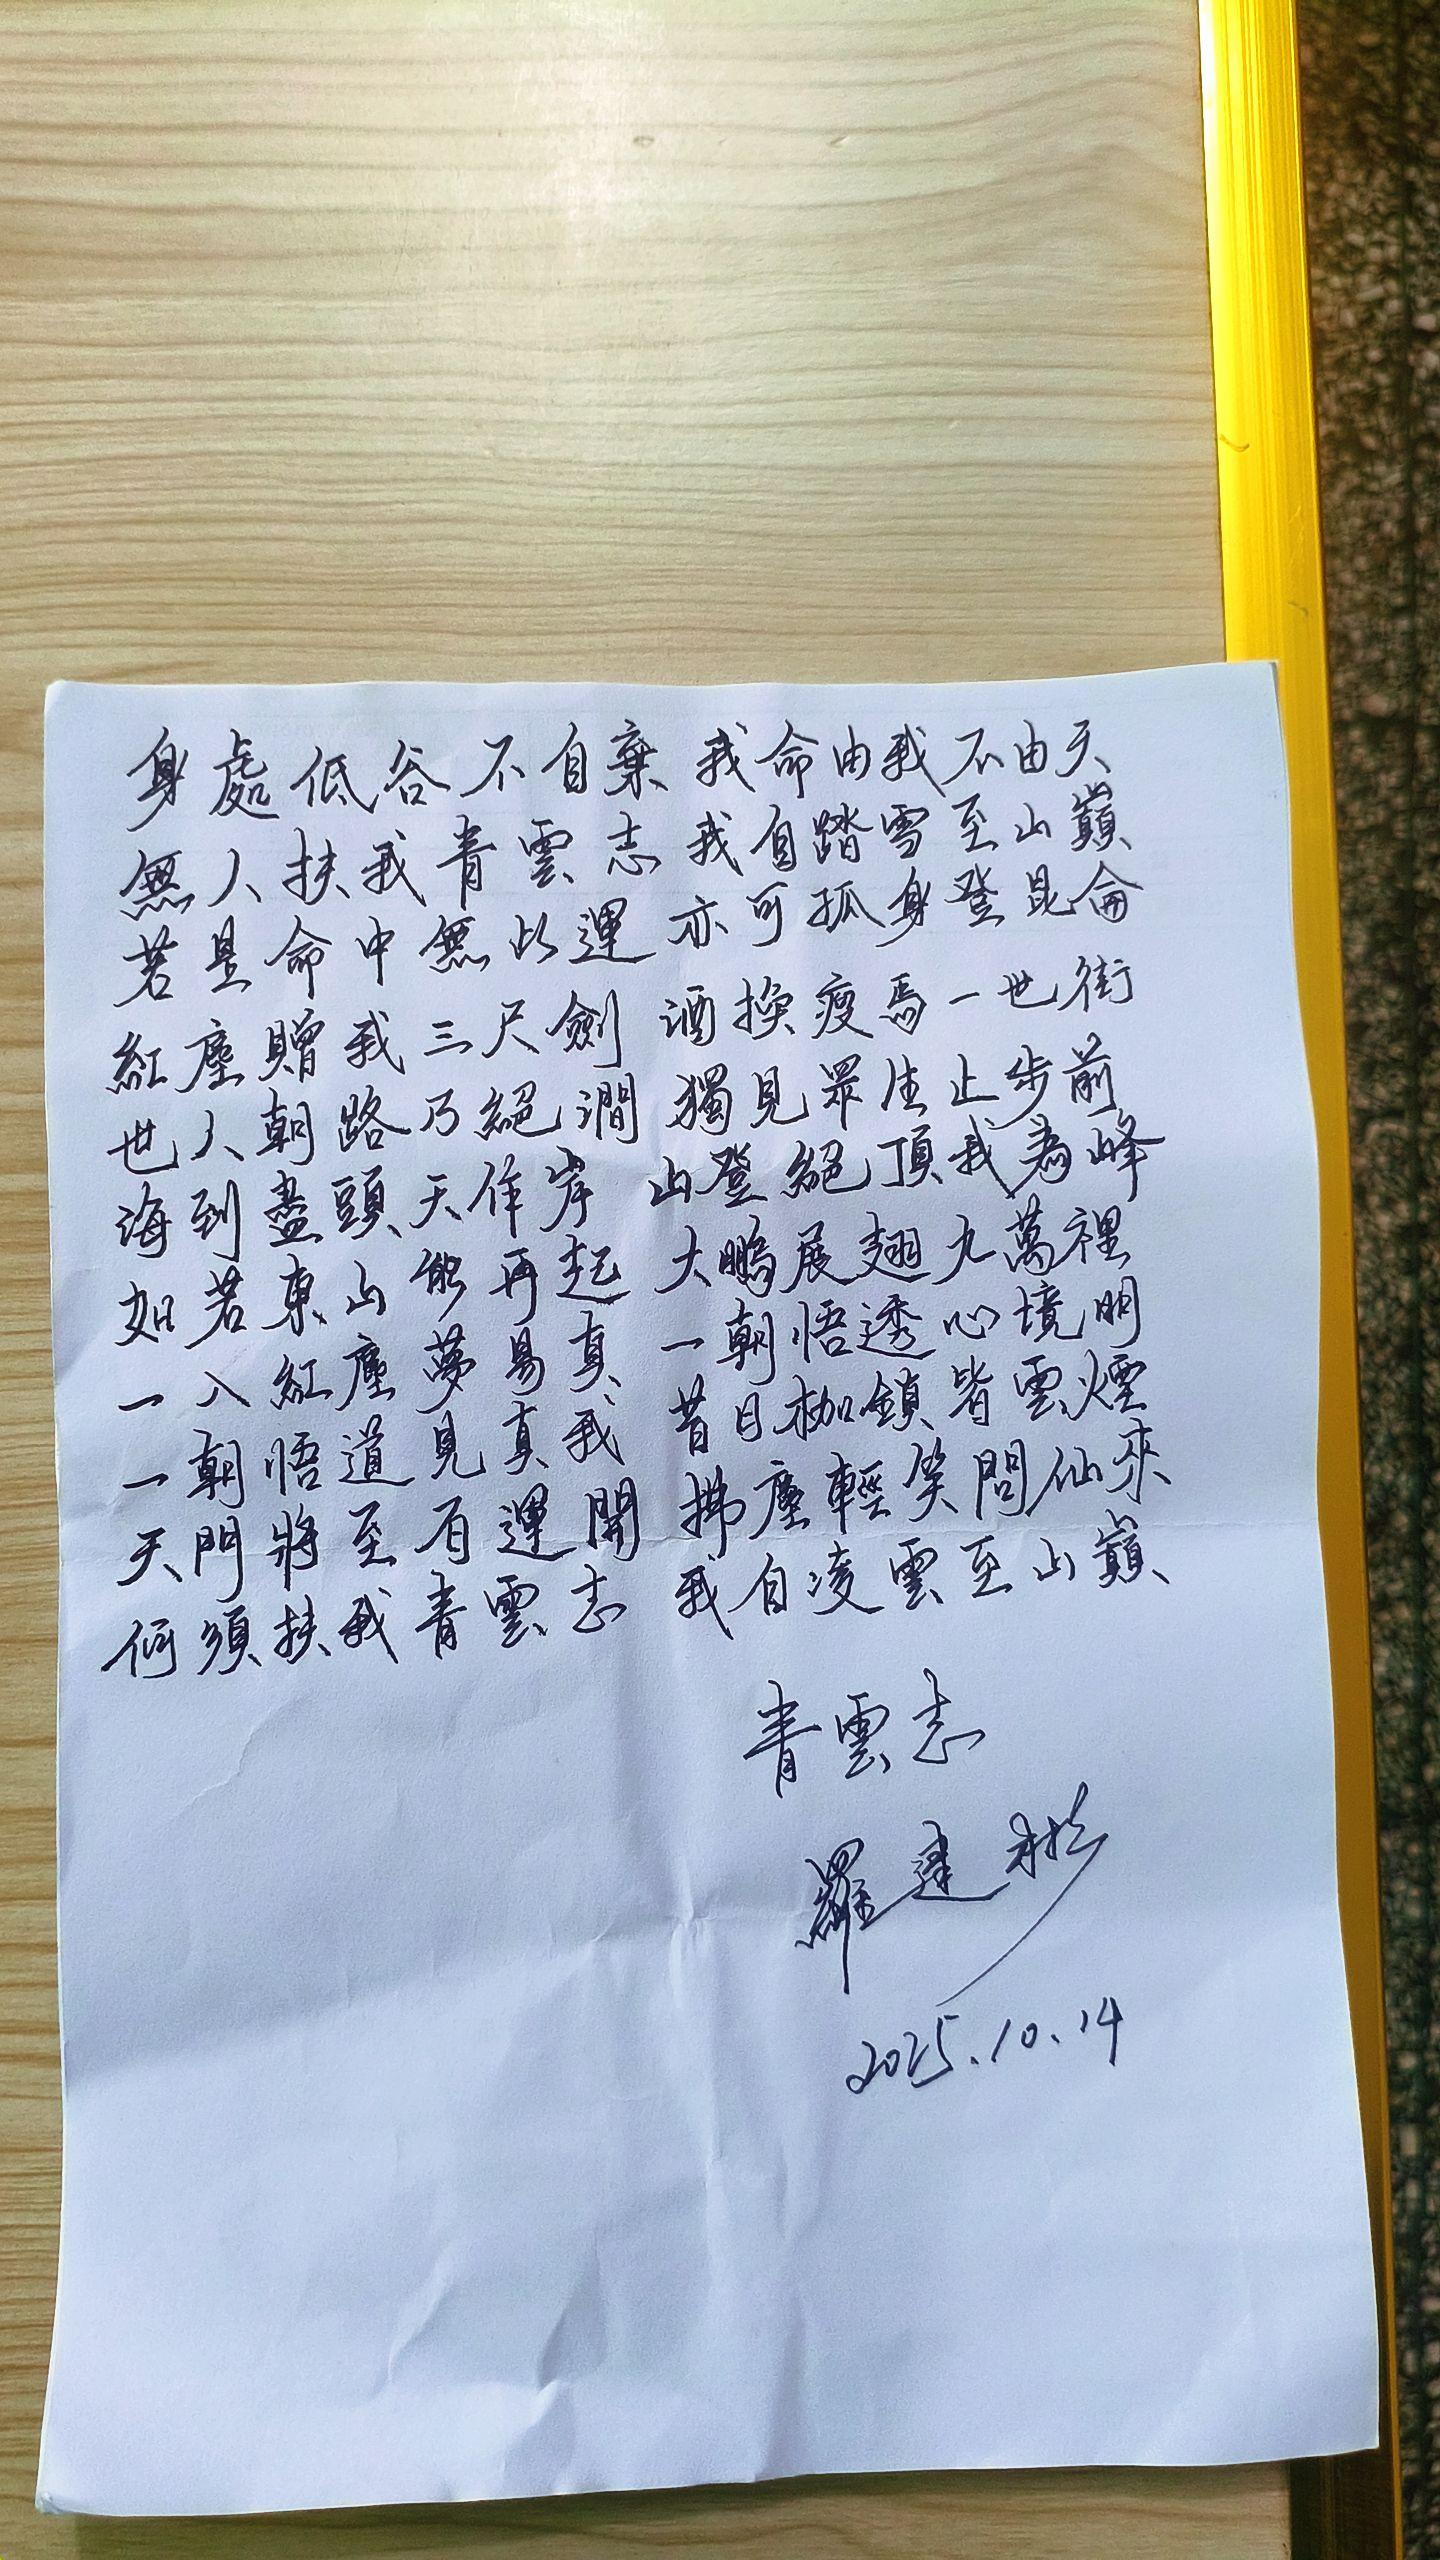 身處低谷不自棄 我命由我不由天
無人扶我青雲志 我自踏雪至山巔
若是命中無此運 亦可孤身登昆侖
紅塵贈我三尺劍 酒換瘦馬一世街
世人朝路乃絕澗 獨見眾生止步前
海到盡頭天作岸 山登絕頂我為峰
如若東山能再起 大鵬展翅九萬裡
一入紅塵夢易真 一朝悟透心境明
一朝悟道見真我 昔日枷鎖皆雲煙
天門將至有運開 拂塵輕笑問仙來
何須扶我青雲志 我自凌雲至山巔
青雲志
羅建彬
2025.10.14